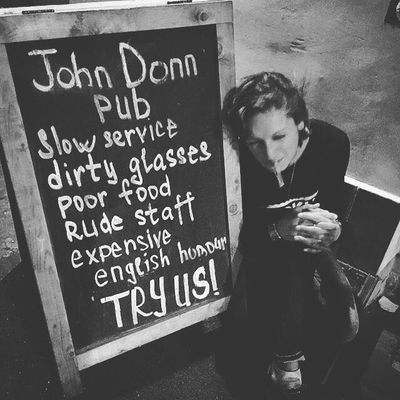 John Donn
pub
Slow service
dirty glasses
poor food
Rude staff
expensive
english humour
TRY US!